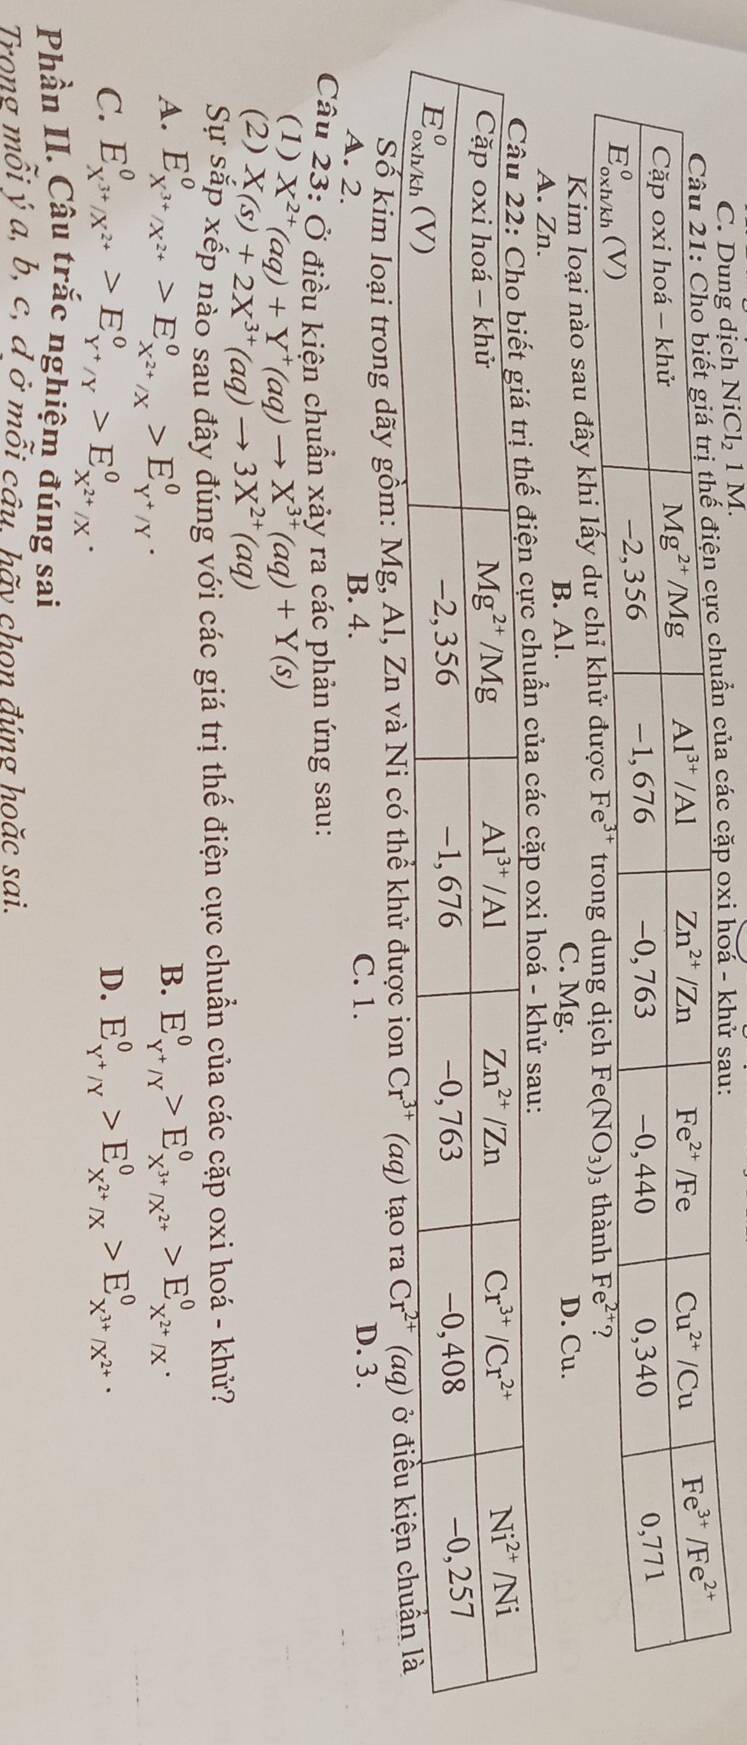 C. Dung dịch NiCl₂ 1 M.
Câu 21: Cho biết giá trị thế điện cực chuẩn của các cặp oxi hoá - khử sau:
Cặp oxi hoá – khử Mg²⁺/Mg Al³⁺/Al Zn²⁺/Zn Fe²⁺/Fe Cu²⁺/Cu Fe³⁺/Fe²⁺
E⁰oxh/kh (V) −2,356 −1,676 −0,763 −0,440 0,340 0,771
Kim loại nào sau đây khi lấy dư chỉ khử được Fe³⁺ trong dung dịch Fe(NO₃)₃ thành Fe²⁺?
A. Zn. B. Al. C. Mg. D. Cu.
Câu 22: Cho biết giá trị thế điện cực chuẩn của các cặp oxi hoá - khử sau:
Cặp oxi hoá – khử Mg²⁺/Mg Al³⁺/Al Zn²⁺/Zn Cr³⁺/Cr²⁺ Ni²⁺/Ni
E⁰oxh/kh (V) −2,356 −1,676 −0,763 −0,408 −0,257
Số kim loại trong dãy gồm: Mg, Al, Zn và Ni có thể khử được ion Cr³⁺ (aq) tạo ra Cr²⁺ (aq) ở điều kiện chuẩn là
A. 2. B. 4. C. 1. D. 3.
Câu 23: Ở điều kiện chuẩn xảy ra các phản ứng sau:
(1) X²⁺(aq) + Y⁺(aq) → X³⁺(aq) + Y(s)
(2) X(s) + 2X³⁺(aq) → 3X²⁺(aq)
Sự sắp xếp nào sau đây đúng với các giá trị thế điện cực chuẩn của các cặp oxi hoá - khử?
A. E⁰X³⁺/X²⁺ > E⁰X²⁺/X > E⁰Y⁺/Y. B. E⁰Y⁺/Y > E⁰X³⁺/X²⁺ > E⁰X²⁺/X.
C. E⁰X³⁺/X²⁺ > E⁰Y⁺/Y > E⁰X²⁺/X. D. E⁰Y⁺/Y > E⁰X²⁺/X > E⁰X³⁺/X²⁺.
Phần II. Câu trắc nghiệm đúng sai
Trong mỗi ý a, b, c, d ở mỗi câu, hãy chọn đúng hoặc sai.